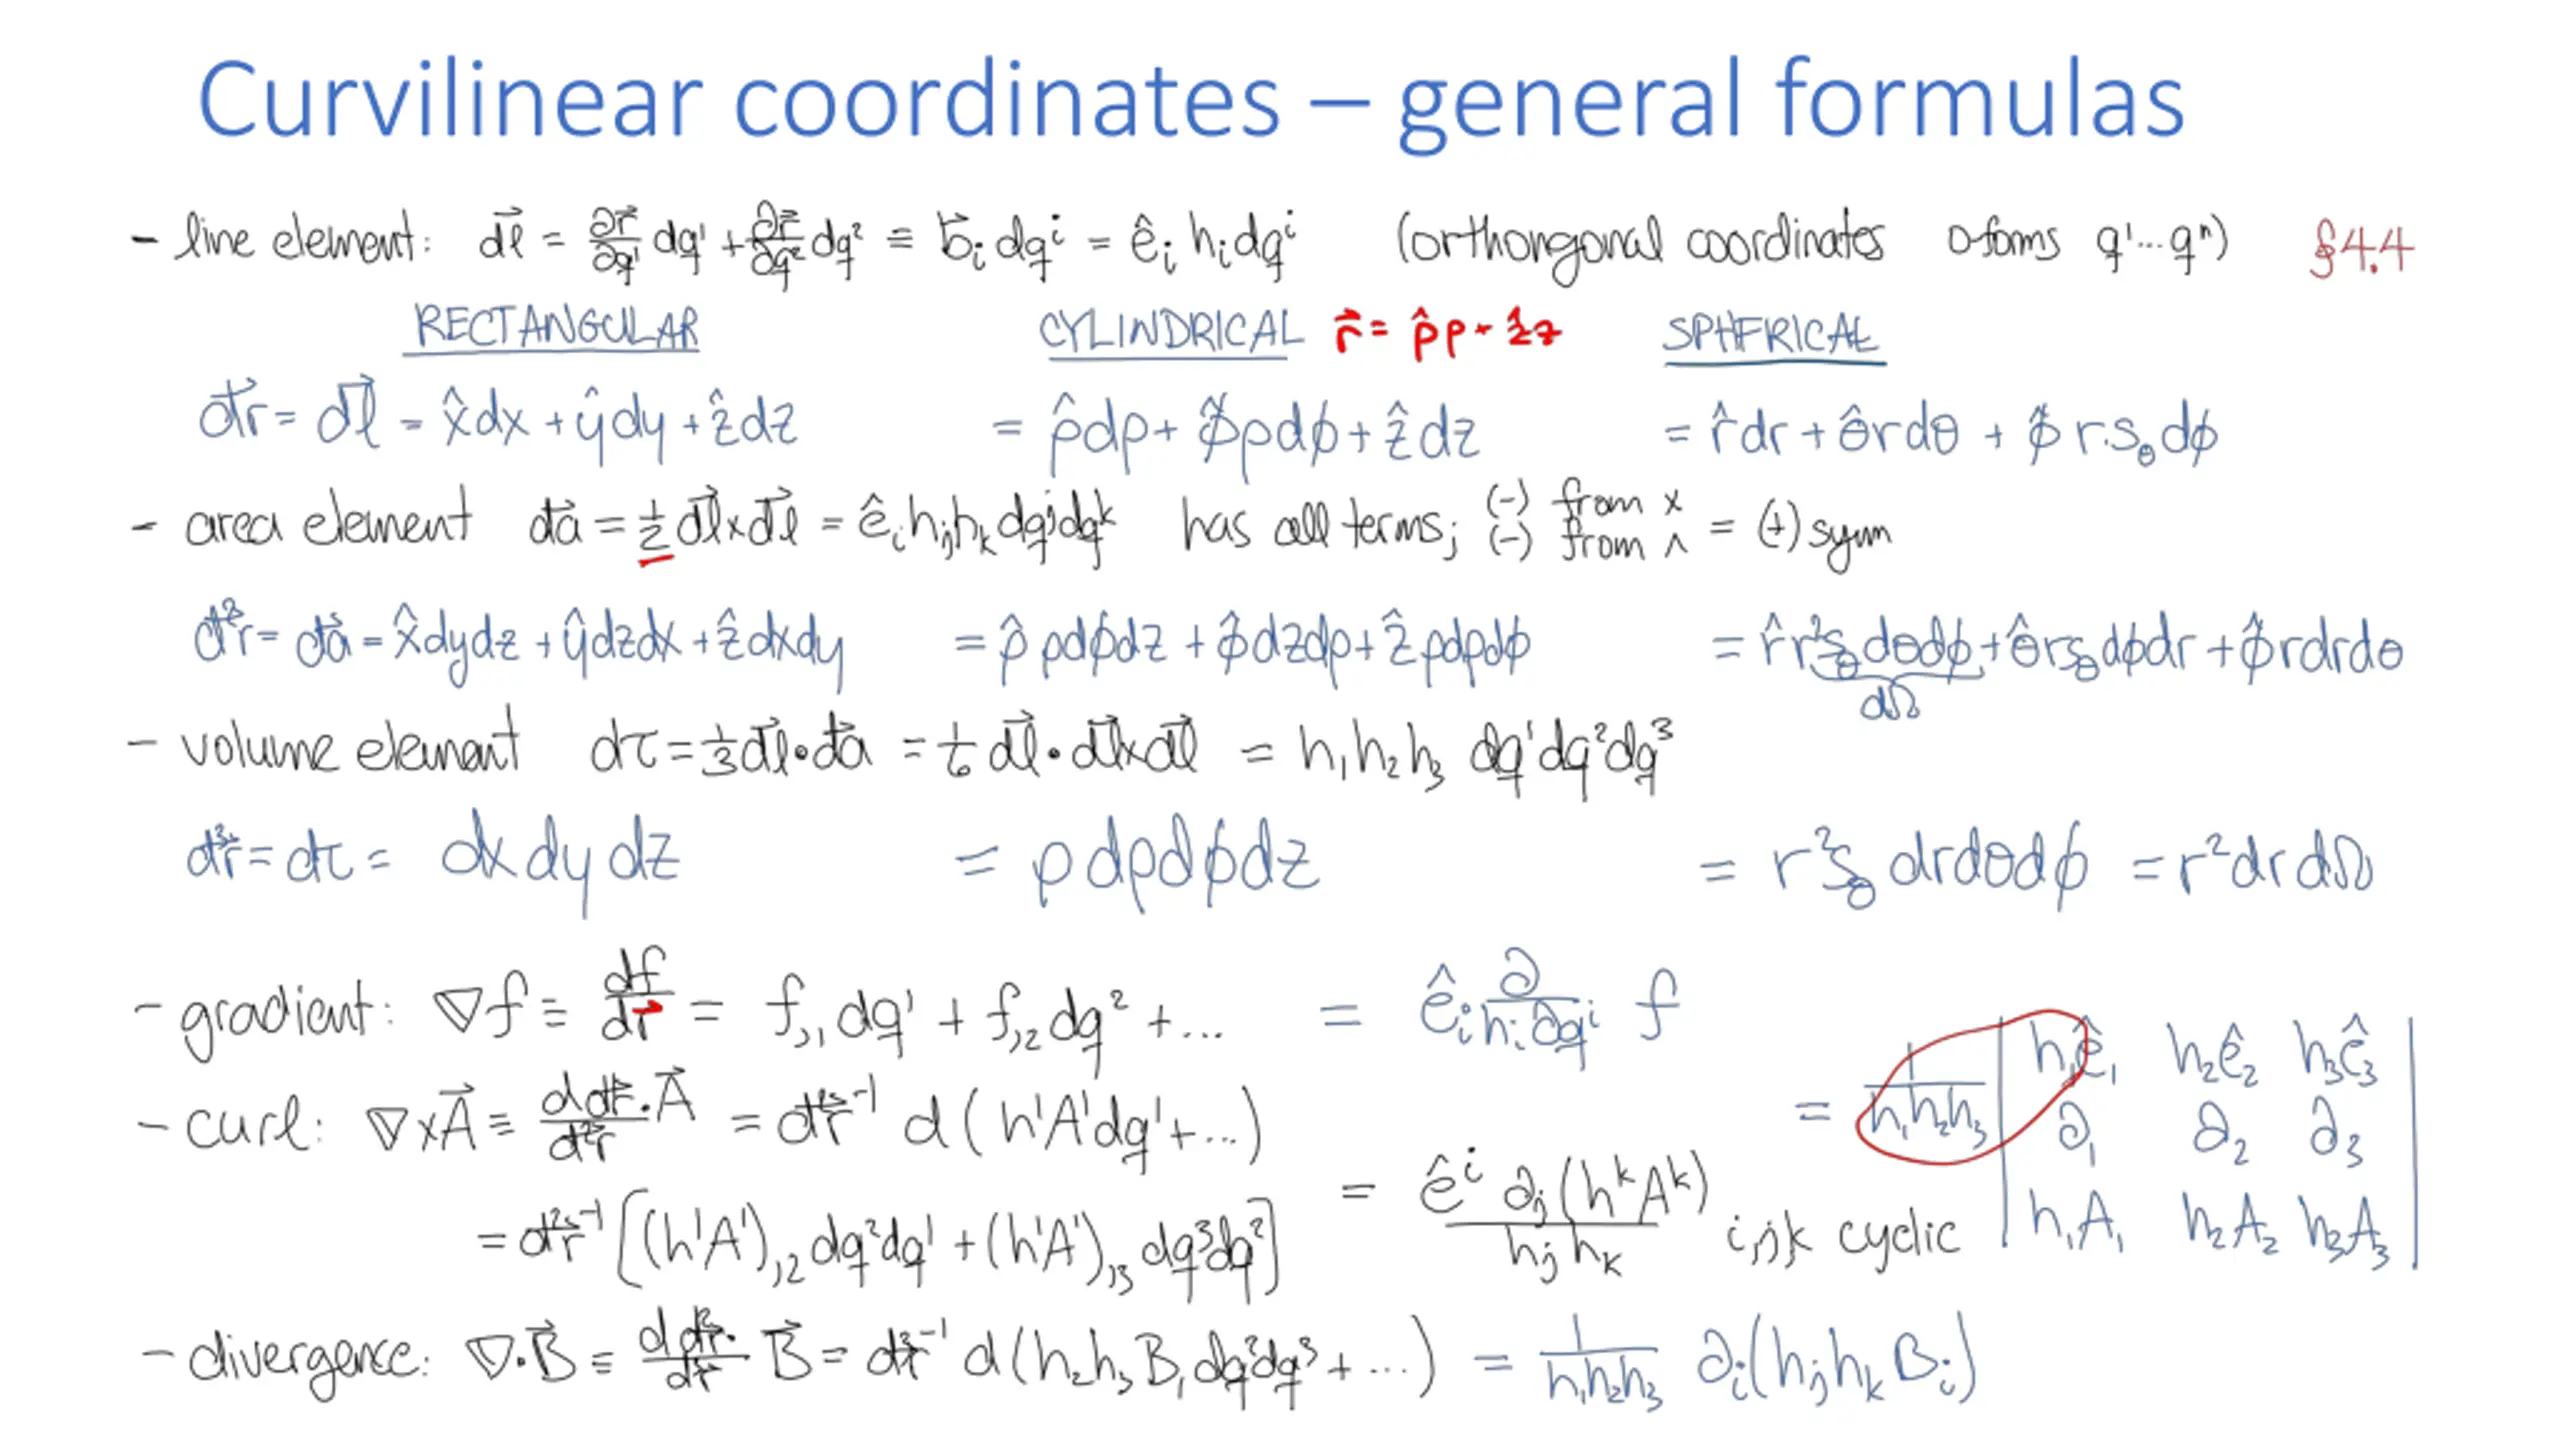 Curvilinear coordinates – general formulas
- line element: d\vec{l} = ∂\vec{r}/∂q¹ dq¹ + ∂\vec{r}/∂q² dq² = \vec{b}_i dq^i = ê_i h_i dq^i (orthongonal coordinates 0-forms q¹...qⁿ) §4.4
RECTANGULAR CYLINDRICAL \vec{r} = ρ̂ρ + ẑz SPHERICAL
d\vec{r} = d\vec{l} = x̂dx + ŷdy + ẑdz = ρ̂dρ + φ̂ρdφ + ẑdz = r̂dr + θ̂rdθ + φ̂ r s_θ dφ
- area element d\vec{a} = ½ d\vec{l}×d\vec{l} = ê_i h_j h_k dq^j dq^k has all terms; (-) from × (-) from ∧ = (+) sym
d²\vec{r} = d\vec{a} = x̂dydz + ŷdzdx + ẑdxdy = ρ̂ ρdφdz + φ̂dzdρ + ẑρdρdφ = r̂r²s_θdθdφ + θ̂rs_θdφdr + φ̂rdrdθ
dΩ
- volume element dτ = ⅓ d\vec{l}·d\vec{a} = ⅙ d\vec{l}·d\vec{l}×d\vec{l} = h₁h₂h₃ dq¹dq²dq³
d³r = dτ = dx dy dz = ρ dρdφdz = r²s_θ drdθdφ = r²drdΩ
- gradient: ∇f ≡ df/d\vec{r} = f,₁ dq¹ + f,₂ dq² + ... = ê_i ∂/h_i∂q^i f
- curl: ∇×\vec{A} ≡ d d\vec{r}·\vec{A}/d²\vec{r} = d²\vec{r}⁻¹ d(h¹A¹dq¹+...) = 1/h₁h₂h₃ | h₁ê₁ h₂ê₂ h₃ê₃
∂₁ ∂₂ ∂₃
h₁A₁ h₂A₂ h₃A₃ |
= d²\vec{r}⁻¹ [(h¹A¹),₂ dq²dq¹ + (h¹A¹),₃ dq³dq²] = ê^i ∂_j(h^kA^k)/h_jh_k i,j,k cyclic
- divergence: ∇·\vec{B} ≡ d d²\vec{r}·/d³r \vec{B} = d³r⁻¹ d(h₂h₃B₁dq²dq³ + ...) = 1/h₁h₂h₃ ∂_i(h_jh_kB_i)